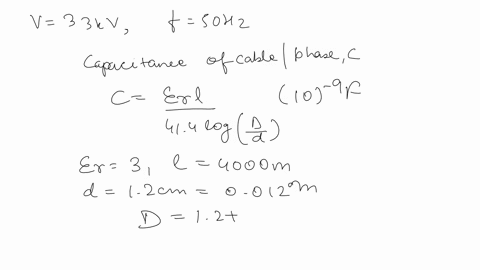 V = 33kV, f = 50Hz
Capacitance of cable / phase, C
C = Erl / 41.4 log(D/d) (10)^-9 F
Er = 3, l = 4000m
d = 1.2cm = 0.012m
D = 1.2+